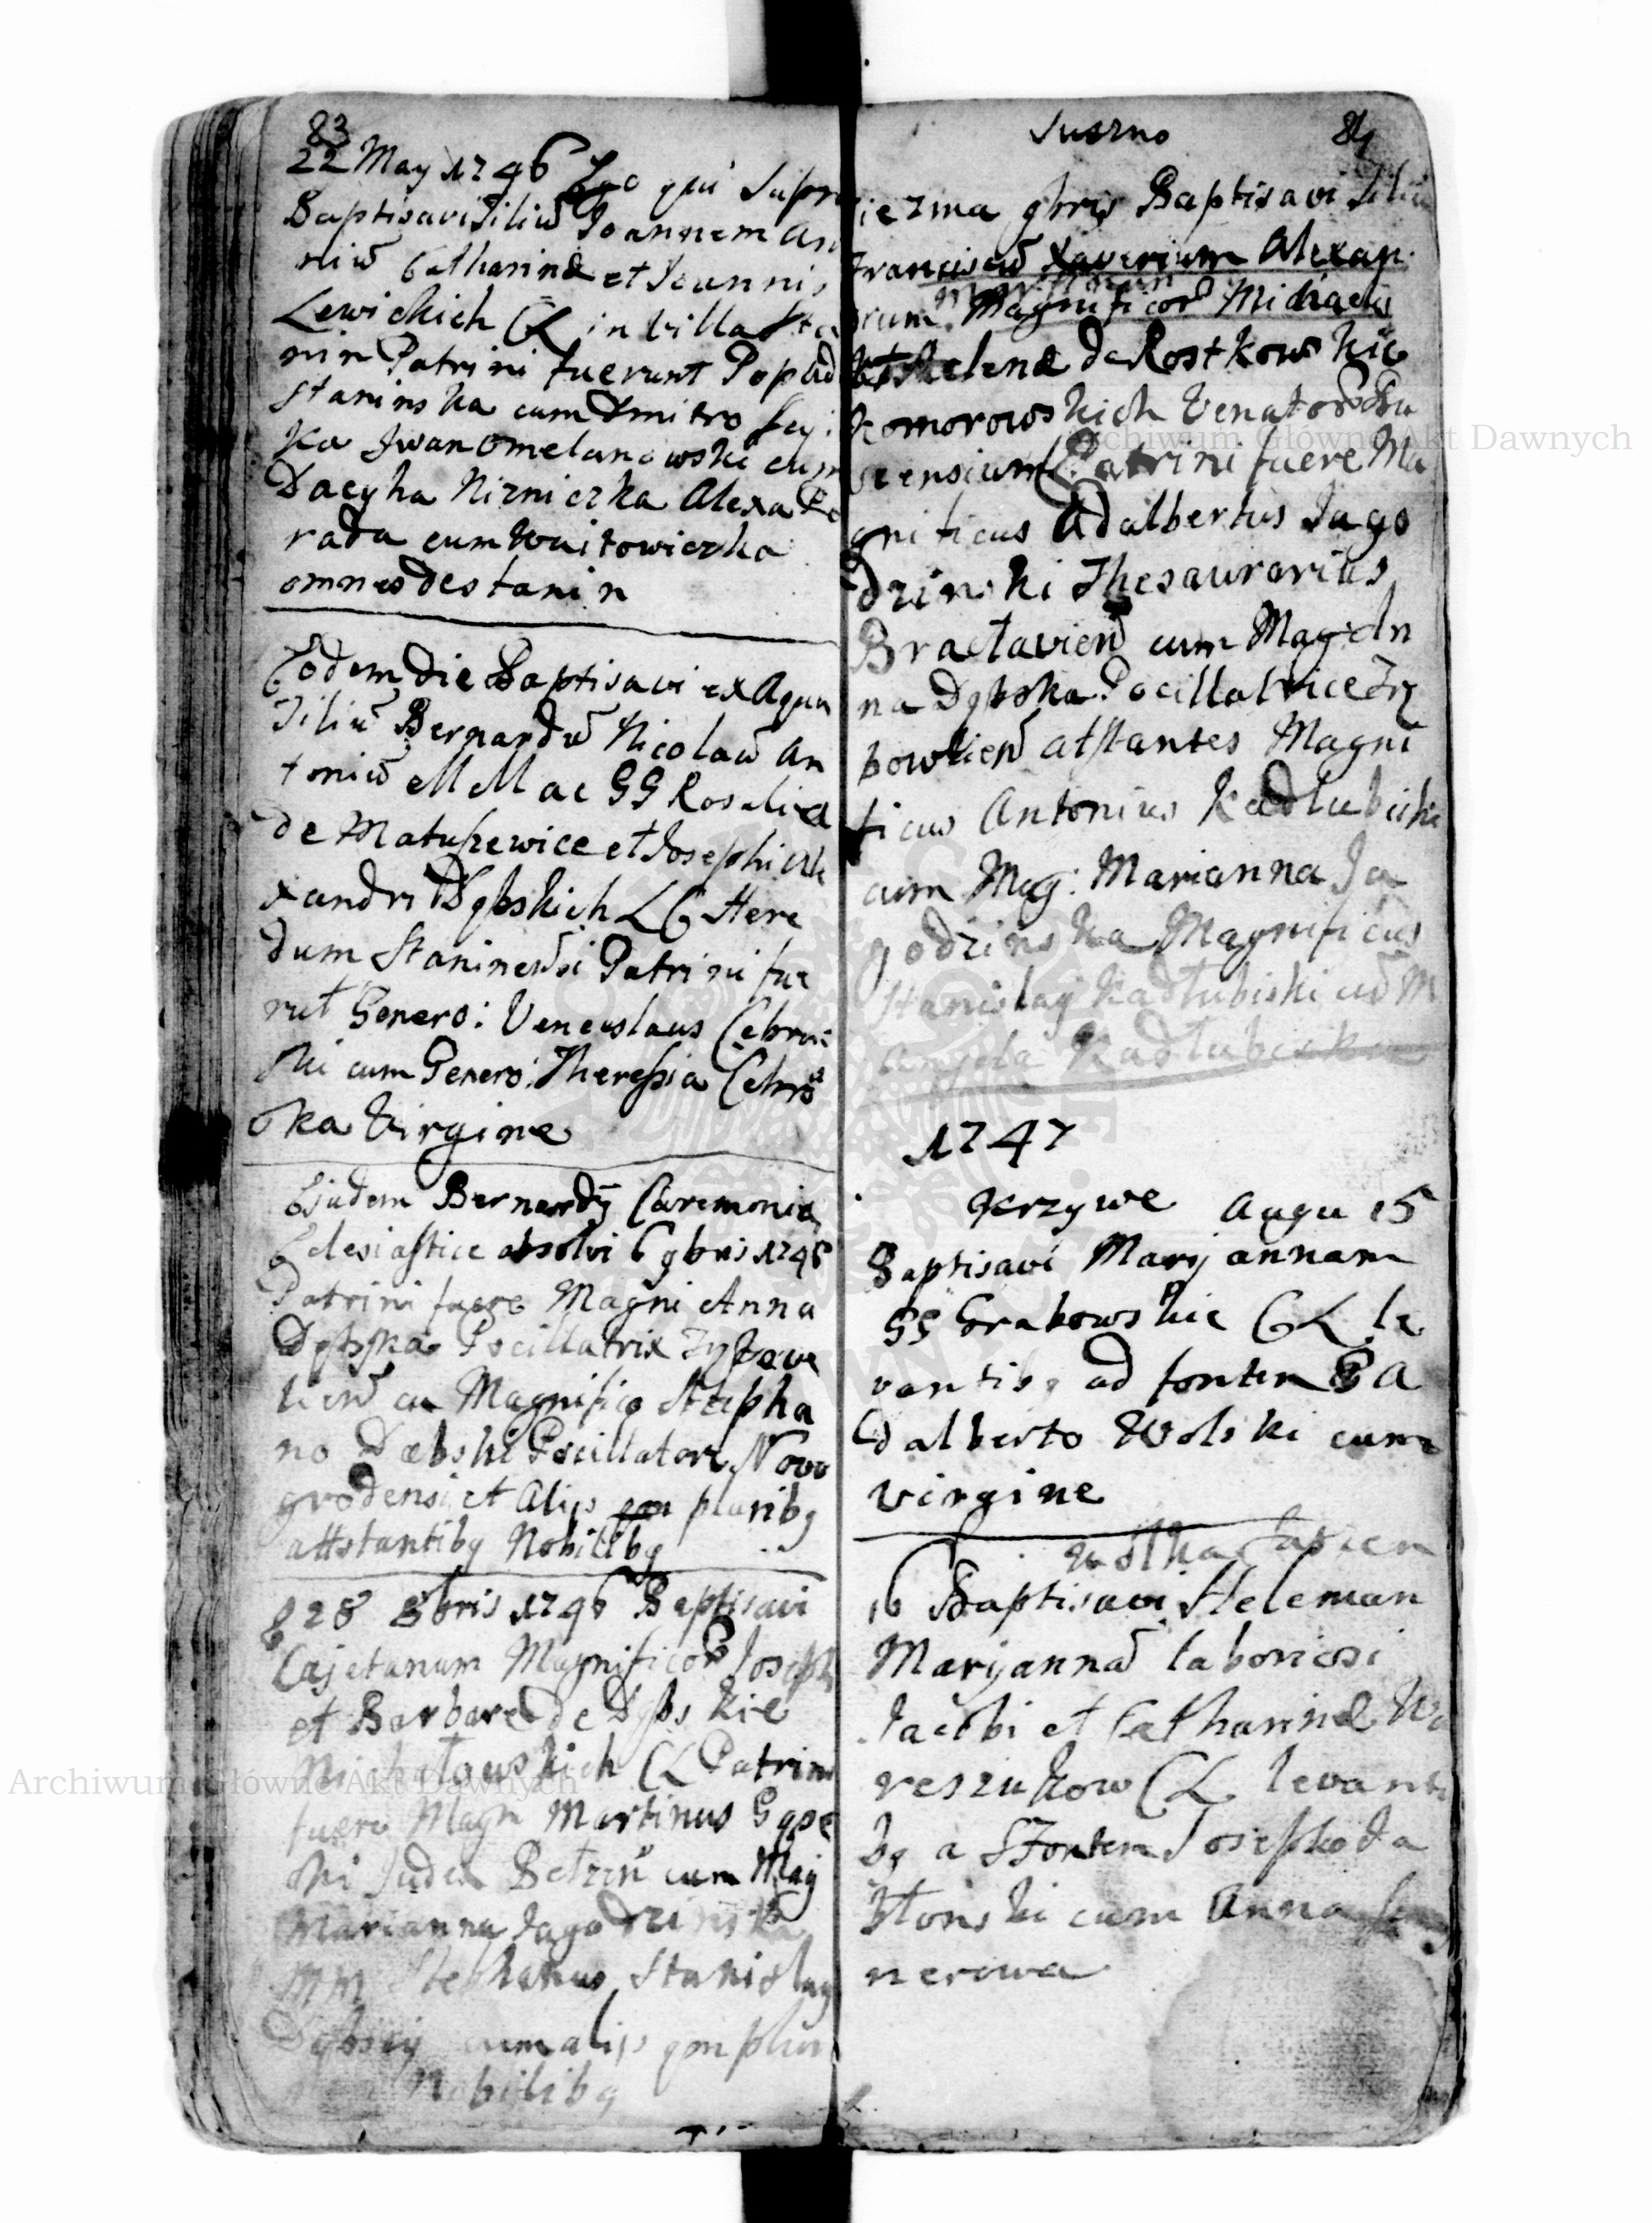 83
22 May 1746 Ego qui supra
Baptisavi Filiū Joannem An
niū Catharinæ et Joannis
Lewickich CL in villa Sta
nin Patrini fuerunt Popad
Staninska cum Dmitro
ka Jwan Omelanowski cum
Dacyha Nizniczka Alexa
rada cum Woitowiczka
omnes de Stanin
Eodem die Baptisavi ex Aqua
Filiū Bernardū Nicolaū An
toniū MM ac GG Rosalia
de Matuszewice et Josephi Ale
xandri Dąbskich LC Here
dum Staninensi Patrini fue
rūt Genero: Venceslaus Cebrow
ski cum Genero: Theressia Cebro
ska Virgine
Ejudem Bernardÿ Cæremonia
Eclesiastice absolvi 6 9bris 1746
Patrini fuere Magni Anna
Dąbska Pocillatrix Zytawe
lienś cū Magnifico Stepha
no Dæbski Pocillatore Novo
grodensi et Alijs qm pluribq
attstantibq Nobilibq
28 8bris 1746 Baptisavi
Cajetanum Magnificor Joseph
et Barbaræ de Dąbskie
Michałowskich CL Patrini
fuere Magn Martinus Gąse
ski Judex Betzeń cum Mag
Marianna Jagodzinska
MM Stephanus, Stanislaq
Dąbscy cum alijs qm pluri
Nobilibq
Juszno 84
iezma 9bris Baptisavi Filiū
Franciscū Xaverium Alexan
rum Magnificor Michaelis
et Helenæ de Rostkowskie
Komorowskich Venator Bu
scensium Patrini fuere Ma
gnificus Adalbertus Jago
dzinski Thesaurarius
Bractavień cum Magdn
na Dąbska Pocillatrice Trę
bowlień atstantes Magni
ficus Antonius Kadłubiski
cum Mag: Marianna Ja
godzinska Magnificus
Stanislaq Kadłubiski cū M
Angela Kadłubiska
1747
Jerzywe Augu 15
Baptisavi Maryannam
GG Grabowskie CL le
vantibq ad fontem GA
dalberto Wolski cum
virgine
Wolka
16 Baptisavi Heleman
Maryannā laboriosi
Jacobi et Catharinæ Wa
reszukow CL levanti
bq a S Fontem Josepho Ja
błonski cum Anna
nerowa